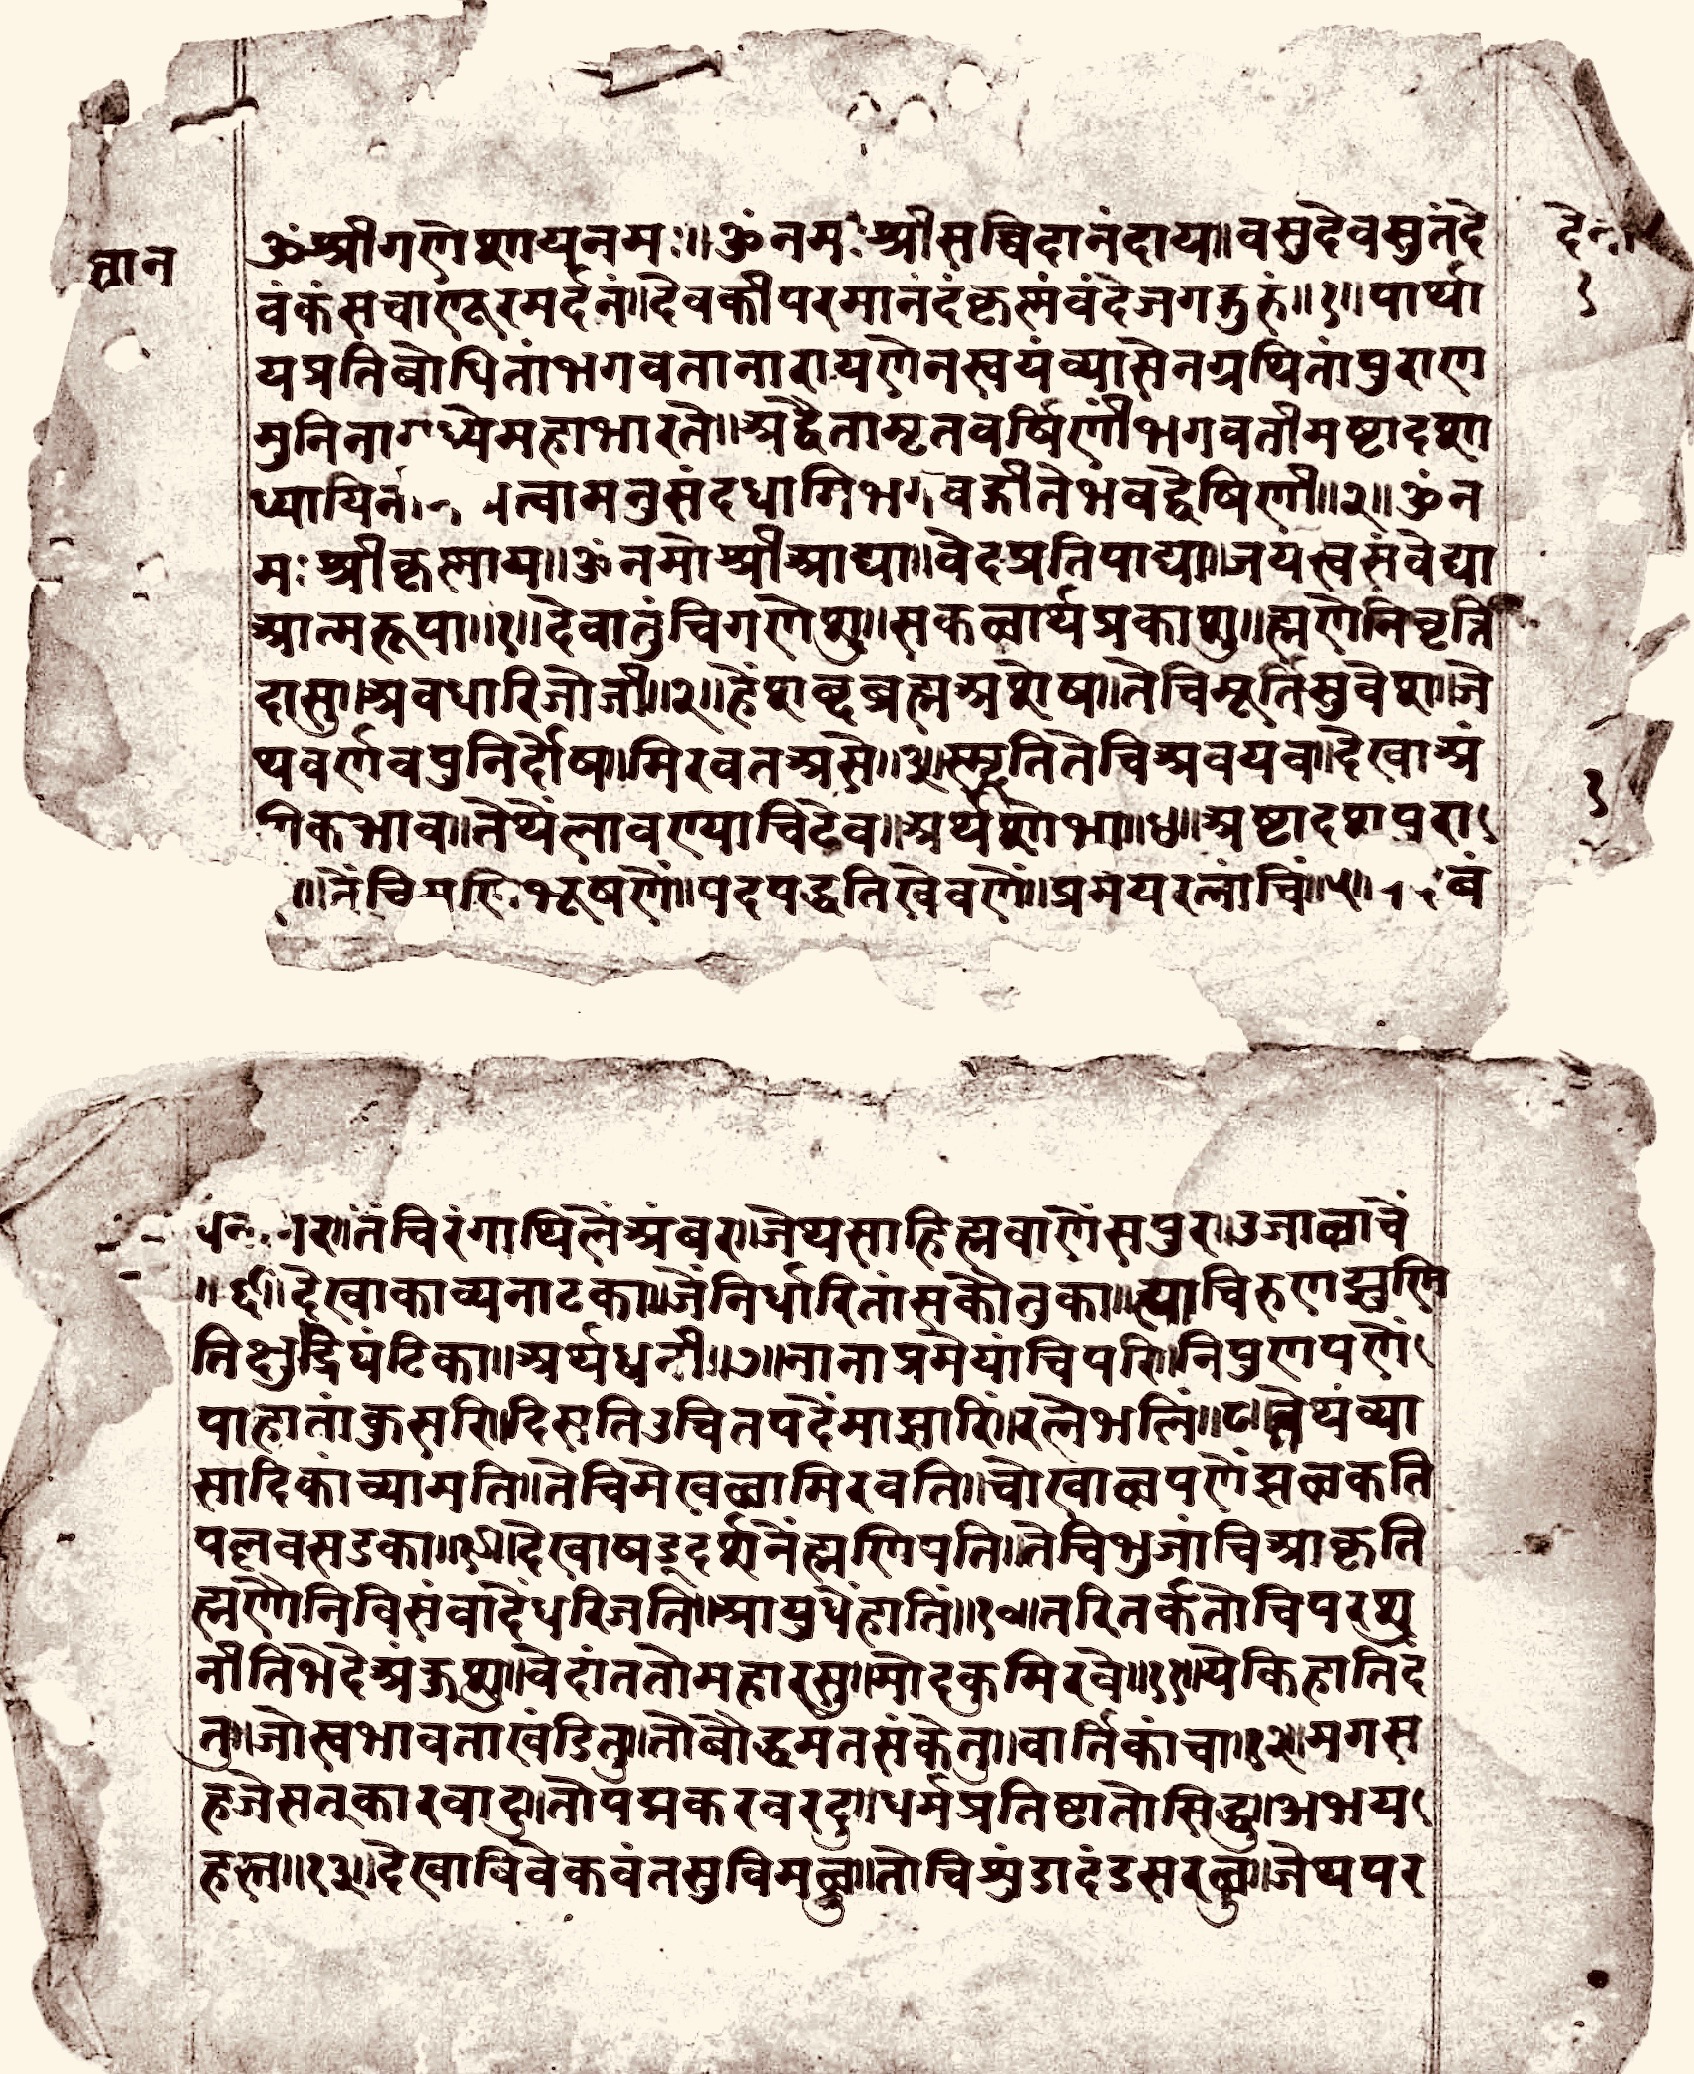 ॐ श्रीगणेशायनमः॥ॐ नमः श्रीसच्चिदानंदाय॥वसुदेवसुतंदे
वंकंसचाणूरमर्दनं॥देवकीपरमानंदंकृष्णंवंदेजगद्गुरुं॥१॥पार्था
यप्रतिबोधितांभगवतानारायणेनस्वयंव्यासेनग्रथितांपुराण
मुनिनामध्येमहाभारते॥अद्वैतामृतवर्षिणींभगवतीमष्टादशा
ध्यायिनीं त्वामनुसंदधामिभगवद्गीतेभवद्वेषिणीं॥२॥ॐ न
मः श्रीकृष्णाय॥ॐ नमोश्रीआद्या॥वेदप्रतिपाद्या॥जयस्वसंवेद्या
आत्मरूपा॥१॥देवातुंचिगणेशु॥सकळार्थप्रकाशु॥ह्मणेनिवृत्ति
दासु॥अवधारिजोजी॥२॥हेंशब्दब्रह्मअशेष॥तेचिमूर्तिसुवेश॥जे
थवर्णवपुनिर्दोष॥मिरवतअसे॥३॥स्मृतितेचिअवयव॥देखाअं
गिकभाव॥तेथेंलावण्याचिठेव॥अर्थशोभा॥४॥अष्टादशपुरा
॥तेंचि भूषणें॥पदपद्धतिखेवणें॥प्रमेयरत्नांचिं॥५॥ बं
॥तेंचिरंगाथिलेंअंबर॥जेथसाहित्मवाणेंसपुर॥उजाळाचें
॥६॥देखाकाव्यनाटका॥जेंनिर्धारितांसकौतुका॥त्याचिरुणझुणि
तिक्षुद्रघंटिका॥अर्थध्वनी॥७॥नानाप्रमेयांचिपरि॥निपुणपणें
पाहातांकुसरि॥दिसतिउचितपदेंमाझारिं॥रत्नेभलिं॥८॥तेथंव्या
सादिकांच्यामति॥तेचिमेखळामिरवति॥चोखाळपणेंझळकति
पलवसडका॥९॥देखाषड्दर्शनेंह्मणिपति॥तेचिभुजांचिआकृति
ह्मणौनिविसंवादेंधरिजति॥आयुधेंहातिं॥१०॥तरितर्कतोचिपरशु
नीतिभेदेअंकुशु॥वेदांततोमहारसु॥मोदकुमिरवे॥११॥येकिहातिदं
तु॥जोस्वभावताखंडितु॥तोबौद्धमतसंकेतु॥वार्तिकांचा॥१२॥मगस
हजेसत्कारवादु॥तोपद्मकरवरदु॥धर्मप्रतिष्ठातोसिद्धु॥अभय
हस्त॥१३॥देखाविवेकवंतसुविमळु॥तोचिशुंडादंडसरळु॥जेथपर